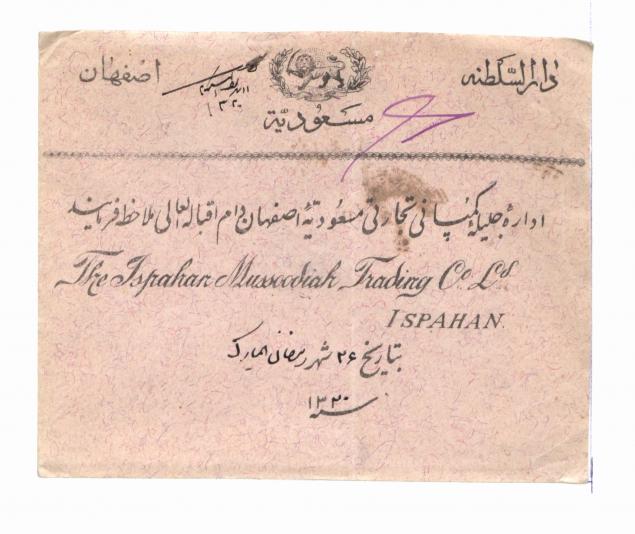 دارالسّلطنه اصفهان
مسعودیّة
۱۳۲۰
ادارهٔ جلیلهٔ کمپانی تجارتی مسعودیّهٔ اصفهان دام اقباله العالی ملاحظه فرمایند
The Ispahan Mussoodiah Trading Co Ld
ISPAHAN.
بتاریخ ۲۶ شهر رمضان المبارک
سنه ۱۳۲۰